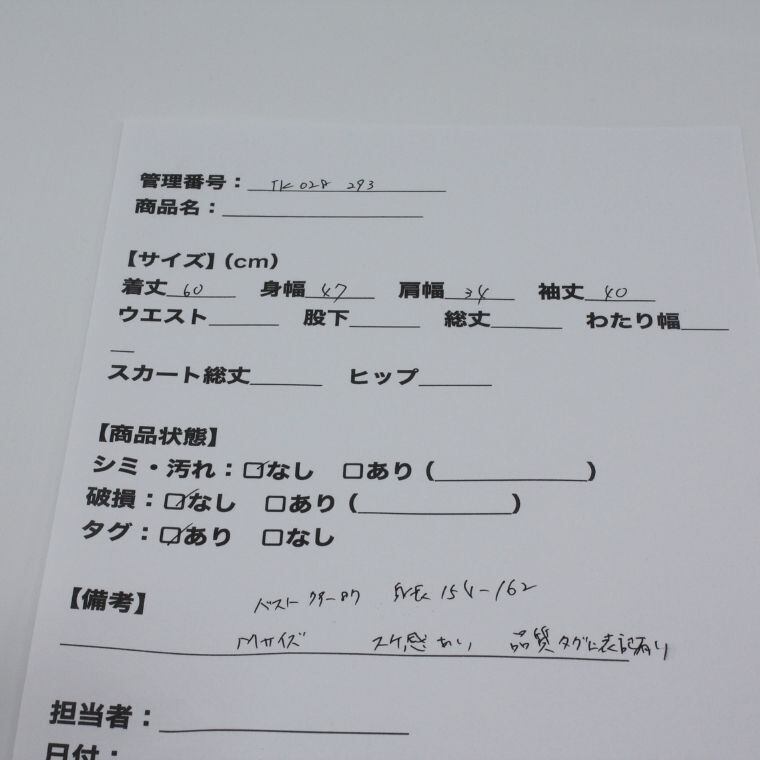 管理番号：TK028 293
商品名：
【サイズ】(cm)
着丈 60 身幅 47 肩幅 34 袖丈 40
ウエスト 股下 総丈 わたり幅
スカート総丈 ヒップ
【商品状態】
シミ・汚れ：☑なし □あり（ ）
破損：☑なし □あり（ ）
タグ：☑あり □なし
【備考】 バスト 79-87 身長 154-162
Mサイズ スケ感あり 品質タグに表記有り
担当者：
日付：